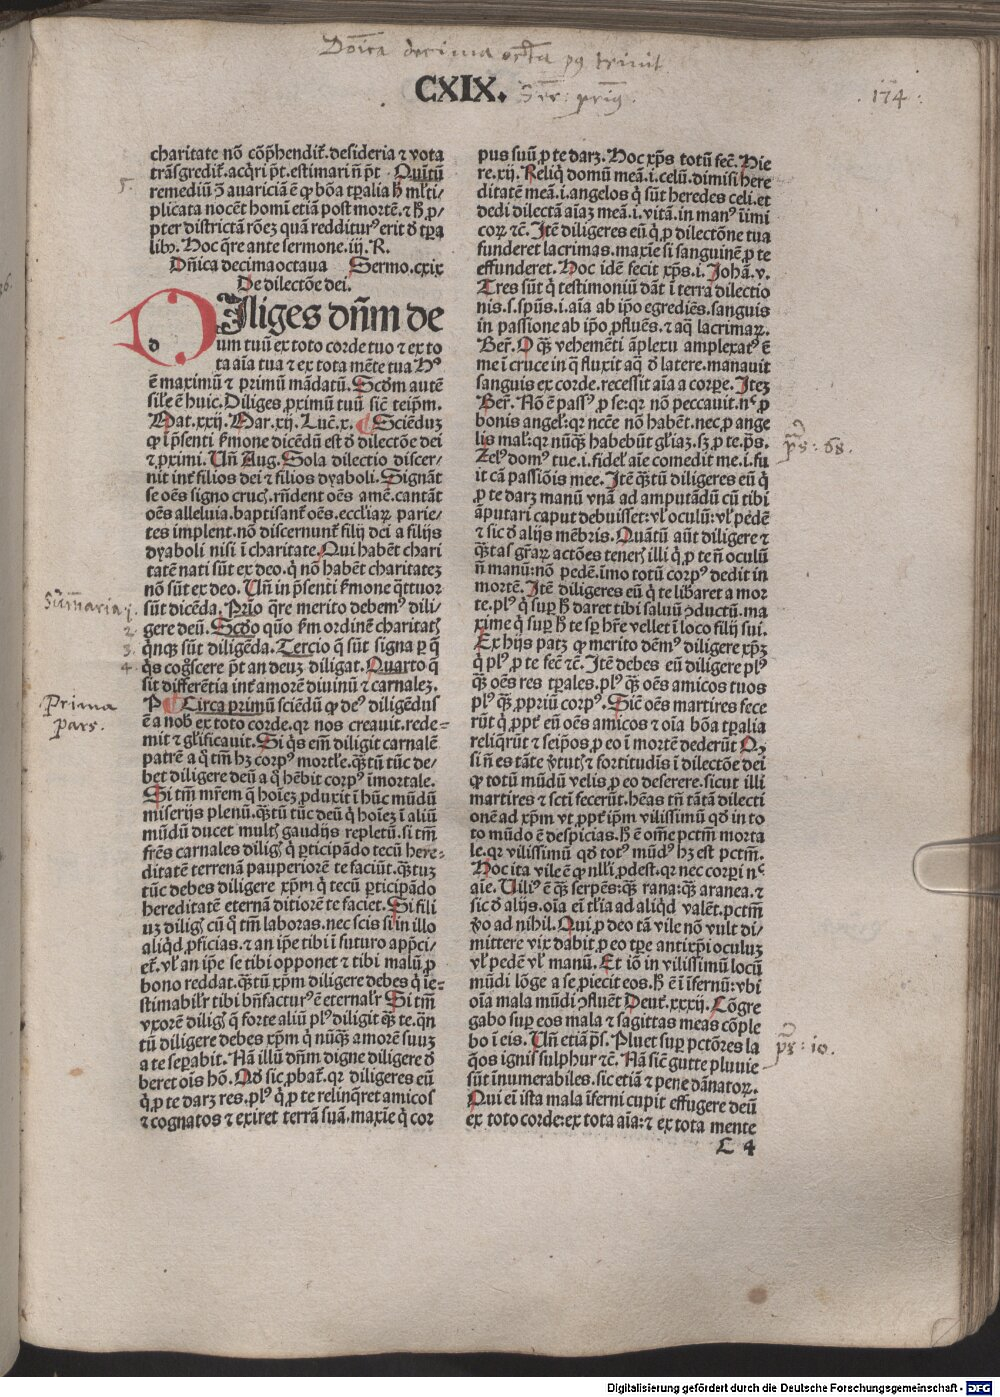 Dōica decima octa pꝰ trinit
CXIX.
Ser: primꝰ.
.174.
charitate nō cōp̄hendit̄. desideria ⁊ vota
trāsgredit̄. acq̄ri pt̄. estimari ñ pt̄. Quītū
5.
remediū ꝯ auariciā ē ꝙ bōa tp̄alia h̄ ml̄ti⸗
plicata nocēt homī etiā post mortē. ⁊ h̄ ꝓ⸗
pter districtā rōez quā redditurꝰ erit ꝺ tp̄a
libꝫ. Hoc q̄re ante sermone. iij. R.
Dn̄ica decimaoctaua Sermo. cxix
De dilectōe dei.
DIliges dn̄m de
um tuū ex toto corde tuo ⁊ ex to
ta aīa tua ⁊ ex tota mēte tua Hꝰ
ē maximū ⁊ primū mādatū. Scḋm autē
sil̄e ē huic. Diliges ꝓximū tuū sic̄ teip̄m.
Mat. xxij. Mar. xij. Luc̄. x. Sciēduꝫ
ꝙ ī p̄senti ẜmone dicēdū est ꝺ dilectōe dei
⁊ ꝓximi. Un̄ Aug. Sola dilectio discer⸗
nit int̄ filios dei ⁊ filios dyaboli. Signāt
se oēs signo crucꝭ. rn̄dent oēs amē. cantāt
oēs alleluia. baptisant̄ oēs. eccl̄iaꝝ parie⸗
tes implent. nō discernunt̄ filij dei a filijs
dyaboli nisi ī charitate. Qui habēt chari
tatē nati sūt ex deo. q̄ nō habēt charitateꝫ
nō sūt ex deo. Un̄ in p̄senti ẜmone q̄ttuor
Sūmaria 1.
sūt dicēda. Prīo q̄re merito debemꝰ dili⸗
2.
gere deū. Scḋo quō ẜm ordinē charitatꝭ
3.
q̄nqꝫ sūt diligēda. Tercio q̄ sūt signa ꝑ q̄
4.
q̄s cog̊scere pt̄ an deus diligat. Quarto q̄
sit differētia int̄ amorē diuinū ⁊ carnaleꝫ.
Prima
pars.
P Circa primū sciēdū ꝙ deꝰ diligēdus
ē a nobꝭ ex toto corde. qr nos creauit. rede⸗
mit ⁊ gl̄ificauit. Si q̄s em̄ diligit carnalē
patrē a q̄ tm̄ hꝫ corpꝰ mortl̄e. q̄ꝫtū tūc de⸗
bet diligere deū a q̄ hēbit corpꝰ īmortale.
Si tm̄ mr̄em q̄ hoīeꝫ ꝓduxit ī hūc mūdū
miserijs plenū. q̄ꝫtū tūc deū q̄ hoīeꝫ ī aliū
mūdū ducet multꝭ gaudijs repletū. si tm̄
fr̄es carnales diligꝭ q̄ ꝑticipādo tecū here⸗
ditatē terrenā pauperiorē te faciūt. q̄ꝫtuꝫ
tūc debes diligere xp̄m q̄ tecū ꝑticipādo
hereditatē eternā ditiorē te faciet. Si fili
uꝫ diligꝭ cū q̄ tm̄ laboras. nec scis si in illo
aliq̄d ꝓficias. ⁊ an ip̄e tibi ī futuro app̄ci⸗
et̄. vl̄ an ip̄e se tibi opponet ⁊ tibi malū ꝓ
bono reddat. q̄ꝫtū xp̄m diligere debes q̄ ie⸗
stimabilr̄ tibi bn̄facturꝰ ē eternalr̄ Si tm̄
vxorē diligꝭ q̄ forte aliū plꝰ diligit q̄ꝫ te. q̄n
tū diligere debes xp̄m q̄ nūq̄ꝫ amorē suuꝫ
a te seꝑabit. Nā illū dn̄m digne diligere ꝺ
beret oīs hō. Qḋ sic ꝓbat̄. qr diligeres eū
q̄ ꝓ te darꝫ res. plꝰ q̄ ꝓ te relinq̄ret amicos
⁊ cognatos ⁊ exiret terrā suā. maxīe q̄ cor
pus suū ꝓ te darꝫ. Hoc xp̄s totū fec̄. Hie
re. xij. Reliq̄ domū meā. i. celū. dimisi here
ditatē meā. i. angelos q̄ sūt heredes celi. et
dedi dilectā aīaꝫ meā. i. vitā. in manꝰ īimi
coꝝ ⁊c̄. Itē diligeres eū q̄ ꝓ dilectōne tua
funderet lacrimas. maxīe si sanguinē ꝓ te
effunderet. Hoc idē fecit xp̄s. i. Johā. v.
Tres sūt q̄ testimoniū dāt ī terra dilectio
nis. s. sp̄us. i. aīa ab ip̄o egrediēs. sanguis
in passione ab ip̄o ꝓfluēs. ⁊ aq̄ lacrimaꝝ.
Ber̄. O q̄ꝫ vehemēti āplexu amplexatꝰ ē
me ī cruce in q̄ fluxit aq̄ ꝺ latere. manauit
sanguis ex corde. recessit aīa a corꝑe. Iteꝫ
Ber̄. Nō ē passꝰ ꝓ se: qr nō peccauit. nᶜ ꝓ
bonis angelꝭ: qr nccē nō habēt. nec ꝓ ange
lis malꝭ: qr nūq̄ꝫ habebūt gl̄iaꝫ. sꝫ ꝓ te. ps̄.
ps: 68.
Zelꝰ domꝰ tue. i. fidelꝭ aīe comedit me. i. fu
it cā passiōis mee. Itē q̄ꝫtū diligeres eū q̄
ꝓ te darꝫ manū vnā ad amputādū cū tibi
āputari caput debuisset: vl̄ oculū: vl̄ pedē
⁊ sic ꝺ alijs mēbris. Quātū aūt diligere ⁊
q̄ꝫtas gr̄aꝝ actōes tenerꝭ illi q̄ ꝓ te ñ oculū
ñ manū: nō pedē. īmo totū corpꝰ dedit in
mortē. Itē diligeres eū q̄ te liƀaret a mor
te. plꝰ q̄ suꝑ h̄ daret tibi saluū ꝯductū. ma
xime q̄ suꝑ h̄ te sꝑ hr̄e vellet ī loco filij sui.
Ex hijs patꝫ ꝙ merito dēmꝰ diligere xp̄ꝫ
q̄ plꝰ ꝓ te fec̄ ⁊c̄. Itē debes eū diligere plꝰ
q̄ꝫ oēs res tp̄ales. plꝰ q̄ꝫ oēs amicos tuos
plꝰ q̄ꝫ ꝓpriū corpꝰ. Sic̄ oēs martires fece
rūt q̄ ꝓpt̄ eū oēs amicos ⁊ oīa bōa tp̄alia
reliq̄rūt ⁊ seip̄os ꝓ eo ī mortē dederūt Qꝫ
si ñ es tāte v̄tutꝭ ⁊ fortitudis ī dilectōe dei
ꝙ totū mūdū velis ꝓ eo deserere. sicut illi
martires ⁊ sct̄i fecerūt. hēas tn̄ tātā dilecti
onē ad xp̄m vt ꝓpt̄ ip̄m vilissimū qḋ in to
to mūdo ē despicias. h̄ ē om̄e pctm̄ morta
le. qr vilissimū qḋ totꝰ mūdꝰ hꝫ est pctm̄.
Hoc ita vile ē ꝙ nlli ꝓdest. qr nec corꝑi nᶜ
aīe. Uiliꝰ ē q̄ꝫ serpēs: q̄ꝫ rana: q̄ꝫ aranea. ⁊
sic ꝺ alijs. oīa em̄ tl̄ia ad aliq̄d valēt. pctm̄
v̊o ad nihil. Qui ꝓ deo tā vile nō vult di⸗
mittere vix dabit ꝓ eo tp̄e antixp̄i oculuꝫ
vl̄ pedē vl̄ manū. Et iō in vilissimū locū
mūdi lōge a se ꝓiecit eos. h̄ ē ī īfernū: vbi
oīa mala mūdi ꝯfluēt Deut̄. xxxij. Cōgre
gabo suꝑ eos mala ⁊ sagittas meas cōple
bo ī eis. Un̄ etiā ps̄. Pluet suꝑ pctōres la
ps: 10.
q̄os ignis sulphur ⁊c̄. Nā sic̄ gutte pluuie
sūt īnumerabiles. sic etiā ⁊ pene dānatoꝝ.
Qui em̄ ista mala īferni cupit effugere deū
ex toto corde: ex tota aīa: ⁊ ex tota mente
L 4
Digitalisierung gefördert durch die Deutsche Forschungsgemeinschaft - DFG